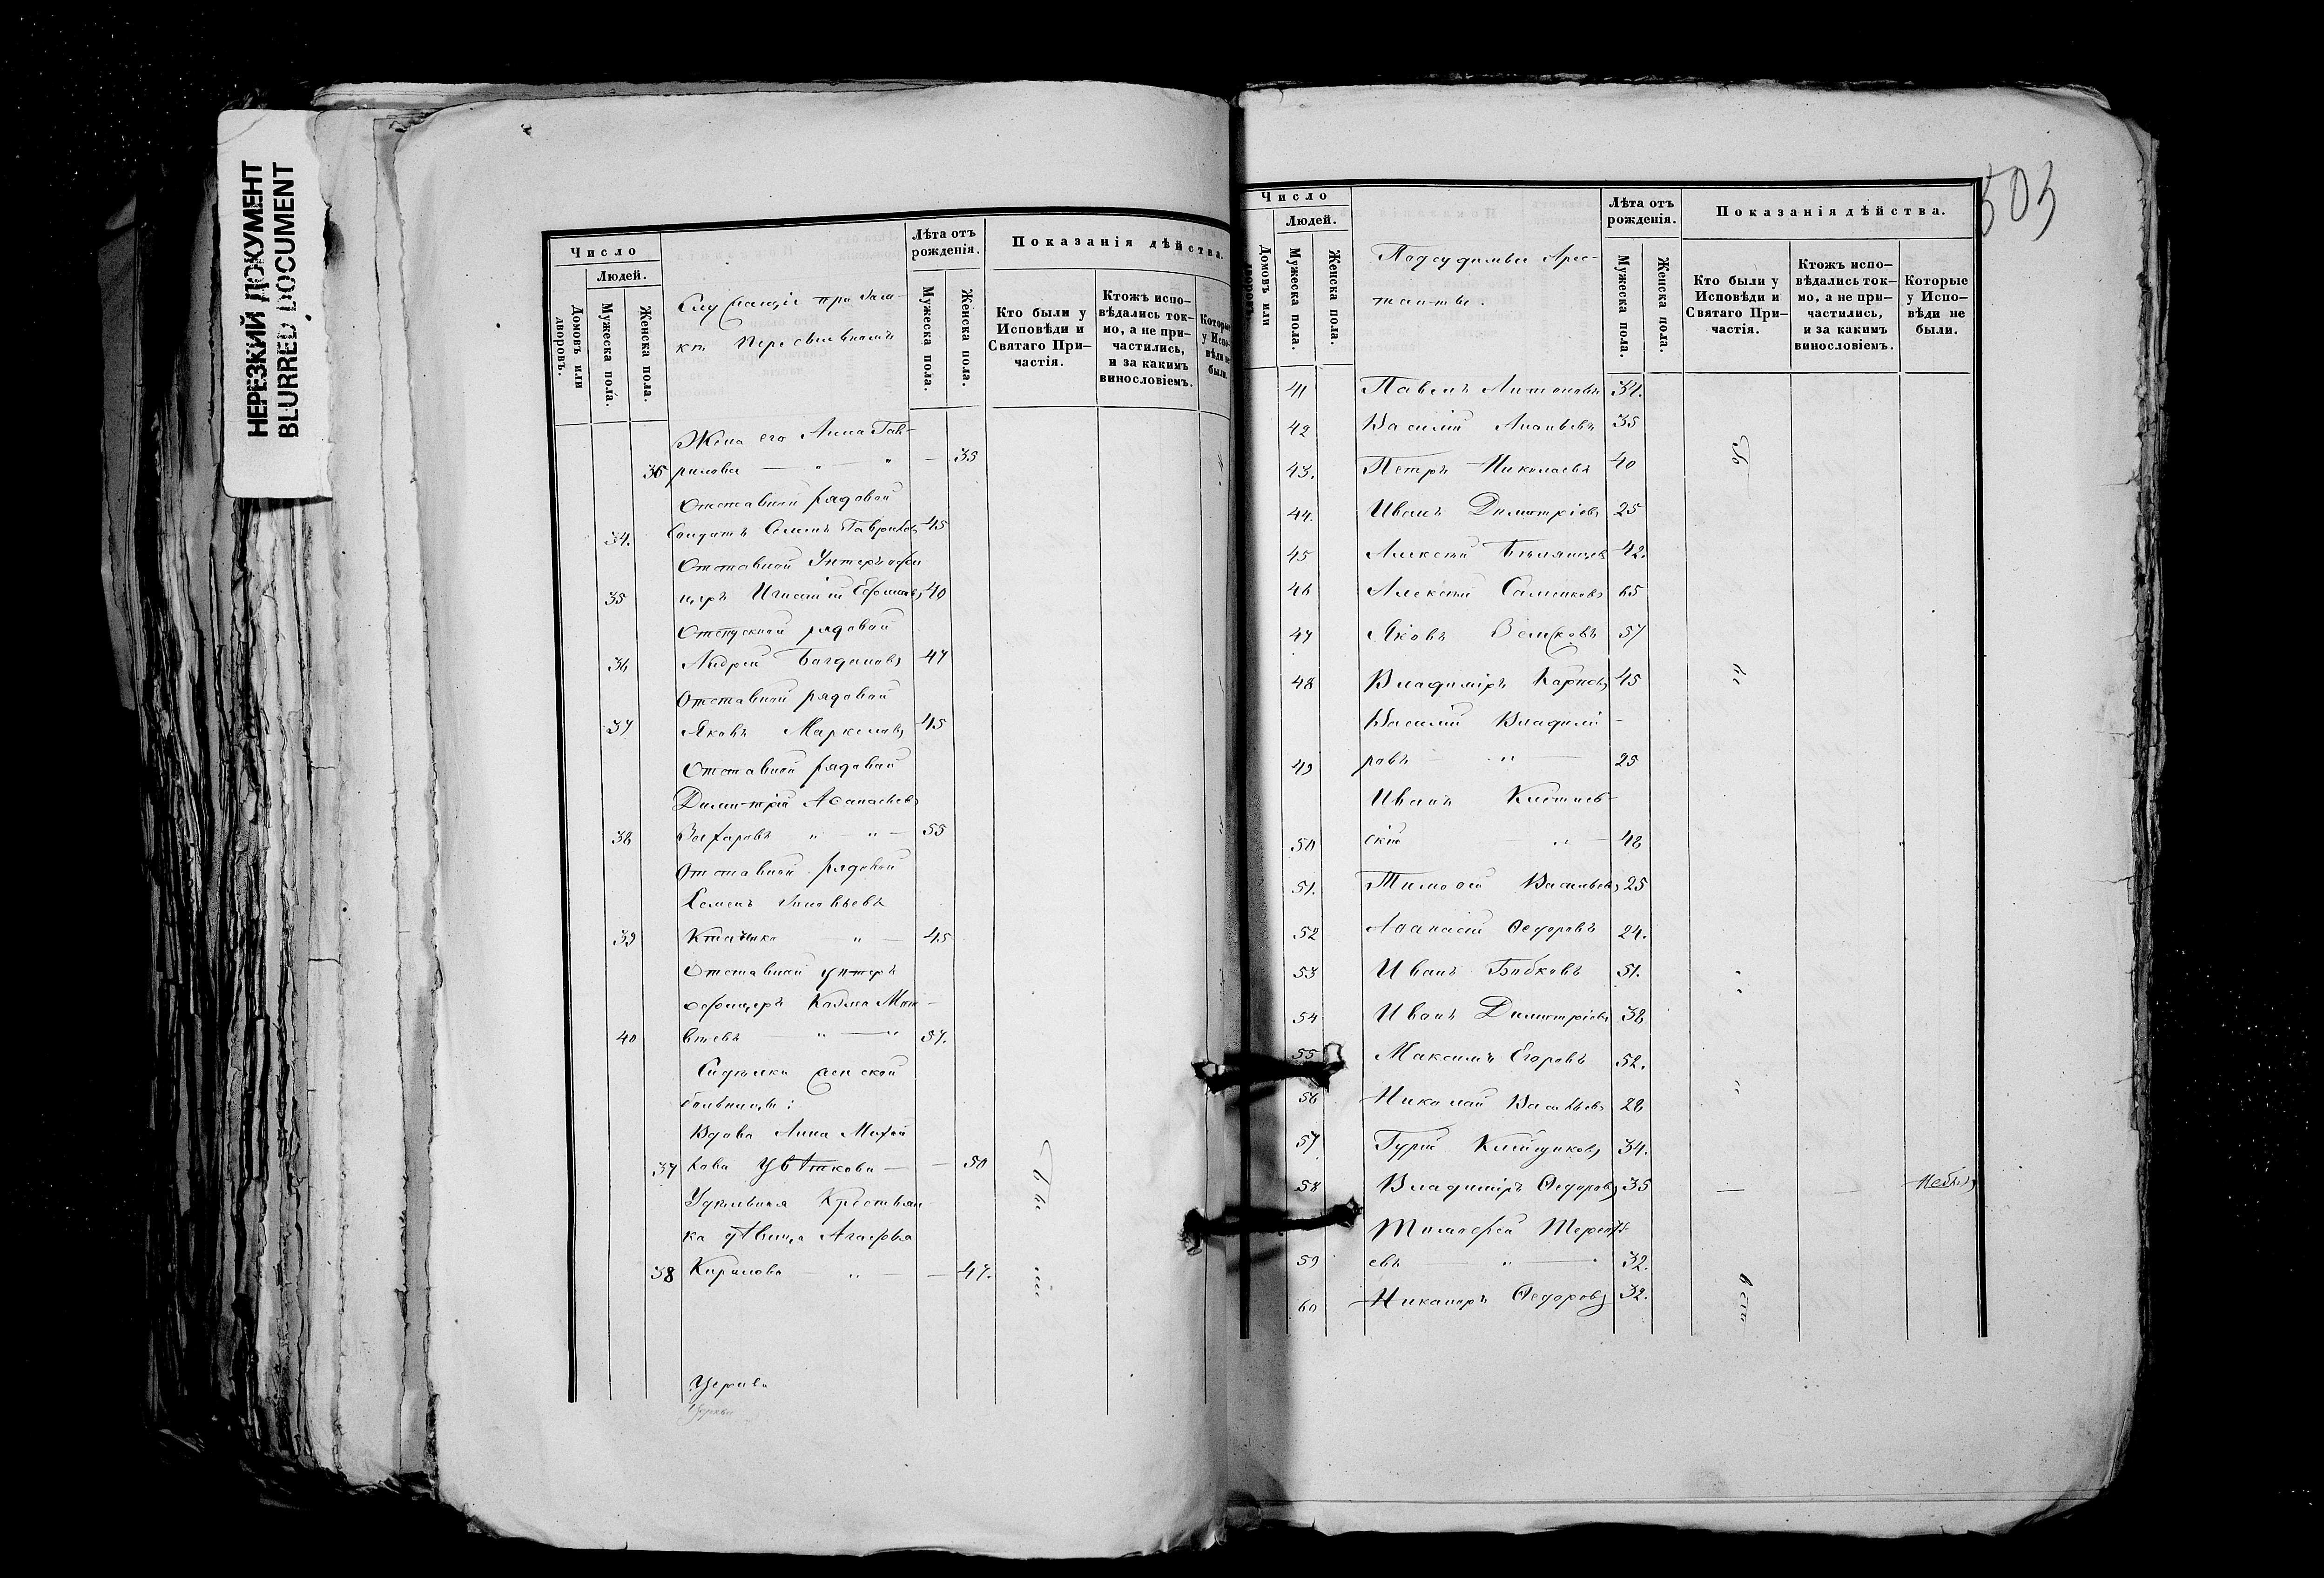 НЕРЕЗКИЙ ДОКУМЕНТ
BLURRED DOCUMENT
Число
Людей.
Домовъ или дворовъ.
Мужеска пола.
Женска пола.
Лѣта отъ рожденія.
Мужеска пола.
Женска пола.
Показанія дѣйства.
Кто были у Исповѣди и Святаго Причастія.
Ктожъ исповѣдались токмо, а не причастились, и за какимъ винословіемъ.
Которые у Исповѣди не были.
Жена его Анна Гав-
36 рилова — „ „ — 35
Отставный рядовой
34. Солдатъ Семенъ Гавриловъ 45
Отставной Унтеръ офи
35 церъ Игнатій 40
Отпускной рядовой
36 Андрей Богдановъ 47
Отставной рядовой
37 Яковъ Маркеловъ 45
Отставной рядовой
Димитрій Аѳанасьевъ
38 Захаровъ „ „ — 55
Отставной рядовой
Семенъ
39 „ — 45
Отставной унтеръ
офицеръ Козма Мат-
40 вѣевъ „ — „ 57.
Сидѣлки женской
больницы:
Вдова Анна Михай
37 лова Цвѣткова — — 50
Удѣльная Крестьян
ка дѣвица Агафья
38 Кирилова — „ — — 47.
Церкви
503
Число
Людей.
Домовъ или дворовъ.
Мужеска пола.
Женска пола.
Подсудимые Арес-
танты.
Лѣта отъ рожденія.
Мужеска пола.
Женска пола.
Показанія дѣйства.
Кто были у Исповѣди и Святаго Причастія.
Ктожъ исповѣдались токмо, а не причастились, и за какимъ винословіемъ.
Которые у Исповѣди не были.
41 Павелъ Антоновъ 34.
42 Василій Ананьевъ 35
43. Петръ Николаевъ 40
44. Иванъ Димитріевъ 25
45 Алексѣй 42.
46 Алексѣй 65
47 Яковъ 57
48 Владиміръ Карповъ 45
Василій Владимі-
49 ровъ — „ — 25
Иванъ
50 скій „ — 48
51. Тимоѳей Васильевъ 25
52 Аѳанасій Ѳедоровъ 24.
53 Иванъ Бобковъ 51.
54 Иванъ Димитріевъ 38
55 Максимъ Егоровъ 52.
56 Николай Васильевъ 28
57 Гурій 34.
58 Владиміръ Ѳедоровъ 35 — — Небылъ
Тимофей Теренть-
59 евъ „ — 32.
60 Никаноръ Ѳедоровъ 32.